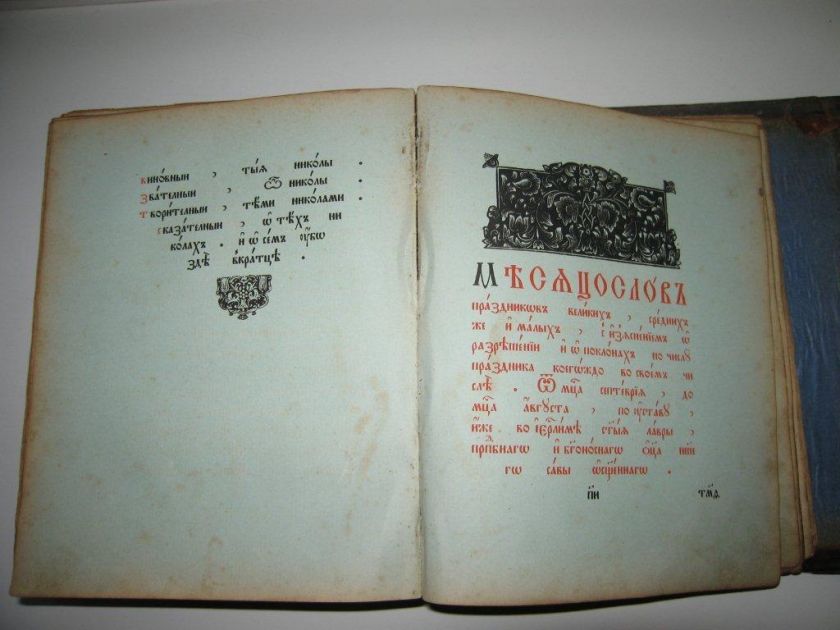 вино́вныи , ты́ѧ нико́лы .
Зва́телныи , ѿ нико́лы
Твори́телныи , тѣ́ми никола́ми .
сказа́телныи , ѡ҆ тѣ́хъ ни
ко́лахъ . и҆ ѡ҆ се́мъ ᲂу҆́бѡ
здѣ̀ вкра́тцѣ .
Мѣсѧцосло́въ
пра́здникѡвъ вели́кихъ , сре́днихъ
же и҆ ма́лыхъ , с̾ и҆з̾ѧсне́нїемъ ѡ҆
разрѣше́нїи и҆ ѡ҆ покло́нахъ по числꙋ̀
пра́здника коегѡ́ждо во свое́мъ чи
слѣ̀ . Ѿ мц҃а септе́врїѧ , до
мц҃а а҆́вгꙋста , по ᲂу҆ста́вꙋ ,
и҆́же во і҆ер҇ли́мѣ ст҃ы́ѧ ла́вры ,
прпⷣбнагѡ и҆ бг҃оно́снагѡ ѻ҆ц҃а̀
гѡ са́вы ѡ҆сщ҃е́ннагѡ .
п҃и тм҃д